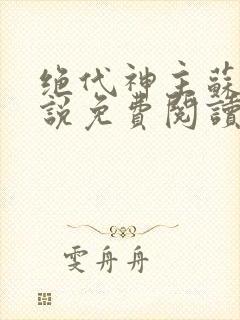 绝代神主蘇
說免費閱讀
雯舟舟